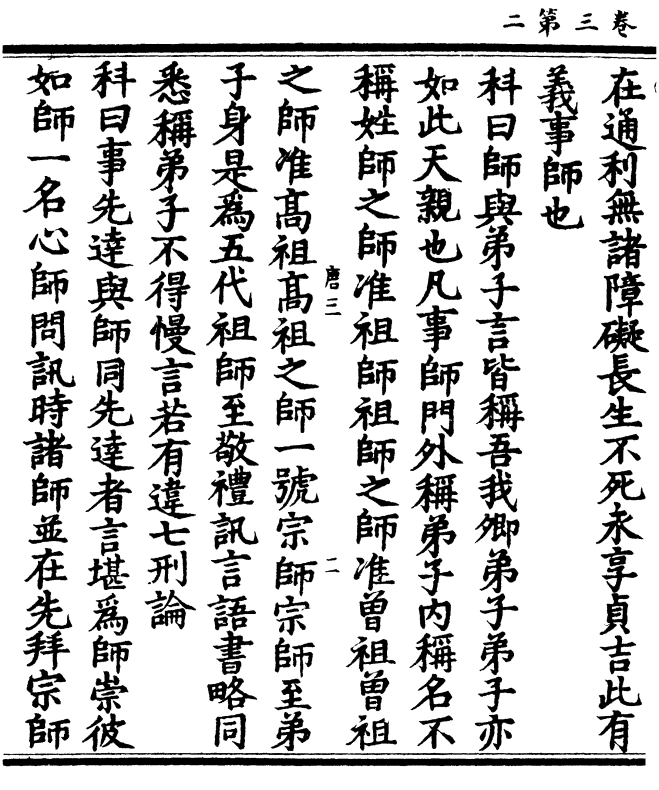 卷三第二
在通利無諸障礙長生不死永享貞吉此有
義事師也
科曰師與弟子言皆稱吾我卿弟子弟子亦
如此天親也凡事師門外稱弟子內稱名不
稱姓師之師准祖師祖師之師准曾祖曾祖
唐三 二
之師准髙祖髙祖之師一號宗師宗師至弟
子身是為五代祖師至敬禮訊言語書略同
悉稱弟子不得慢言若有違七刑論
科曰事先達與師同先達者言堪為師崇彼
如師一名心師問訊時諸師並在先拜宗師